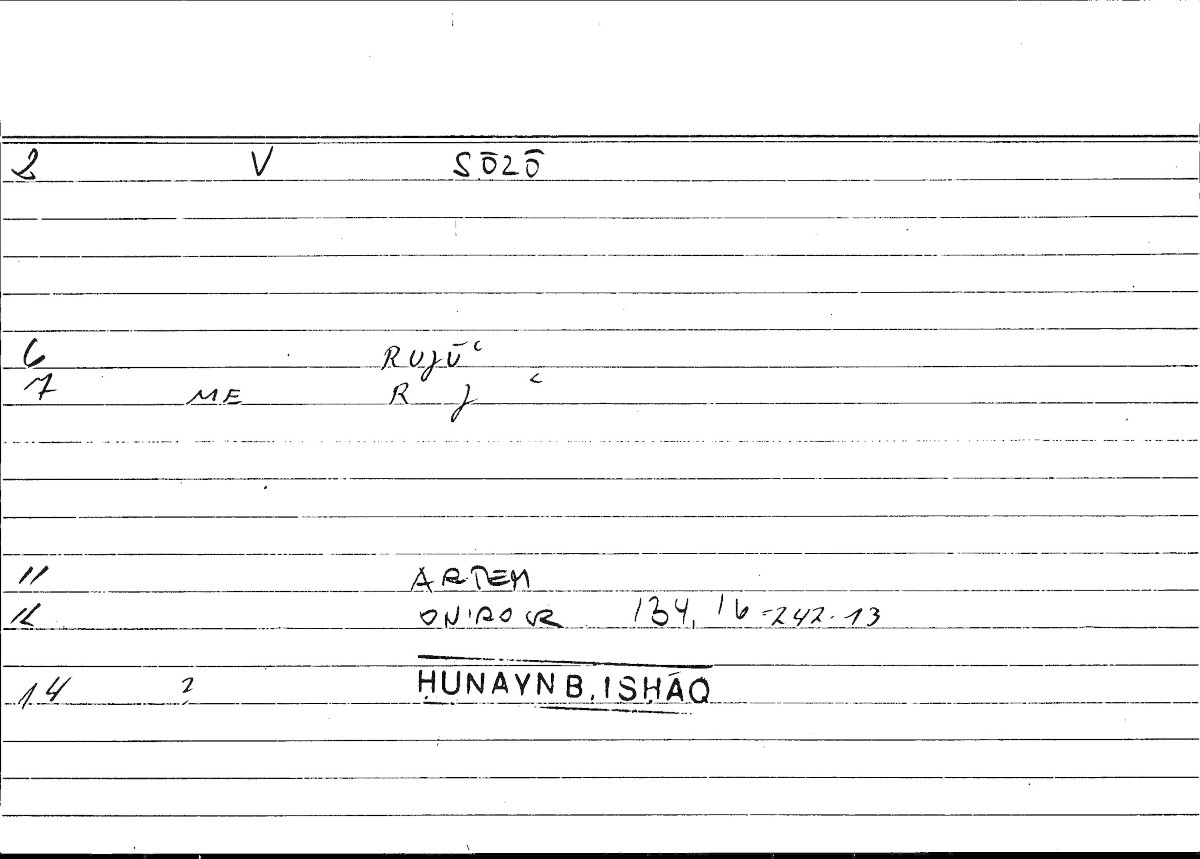 2 V SŌZŌ
6 RUJŪʿ
7 ME R J ʿ
11 ARTEM
12 ONIROCR 134, 16 = 242.13
14 2 ḤUNAYN B. ISḤĀQ